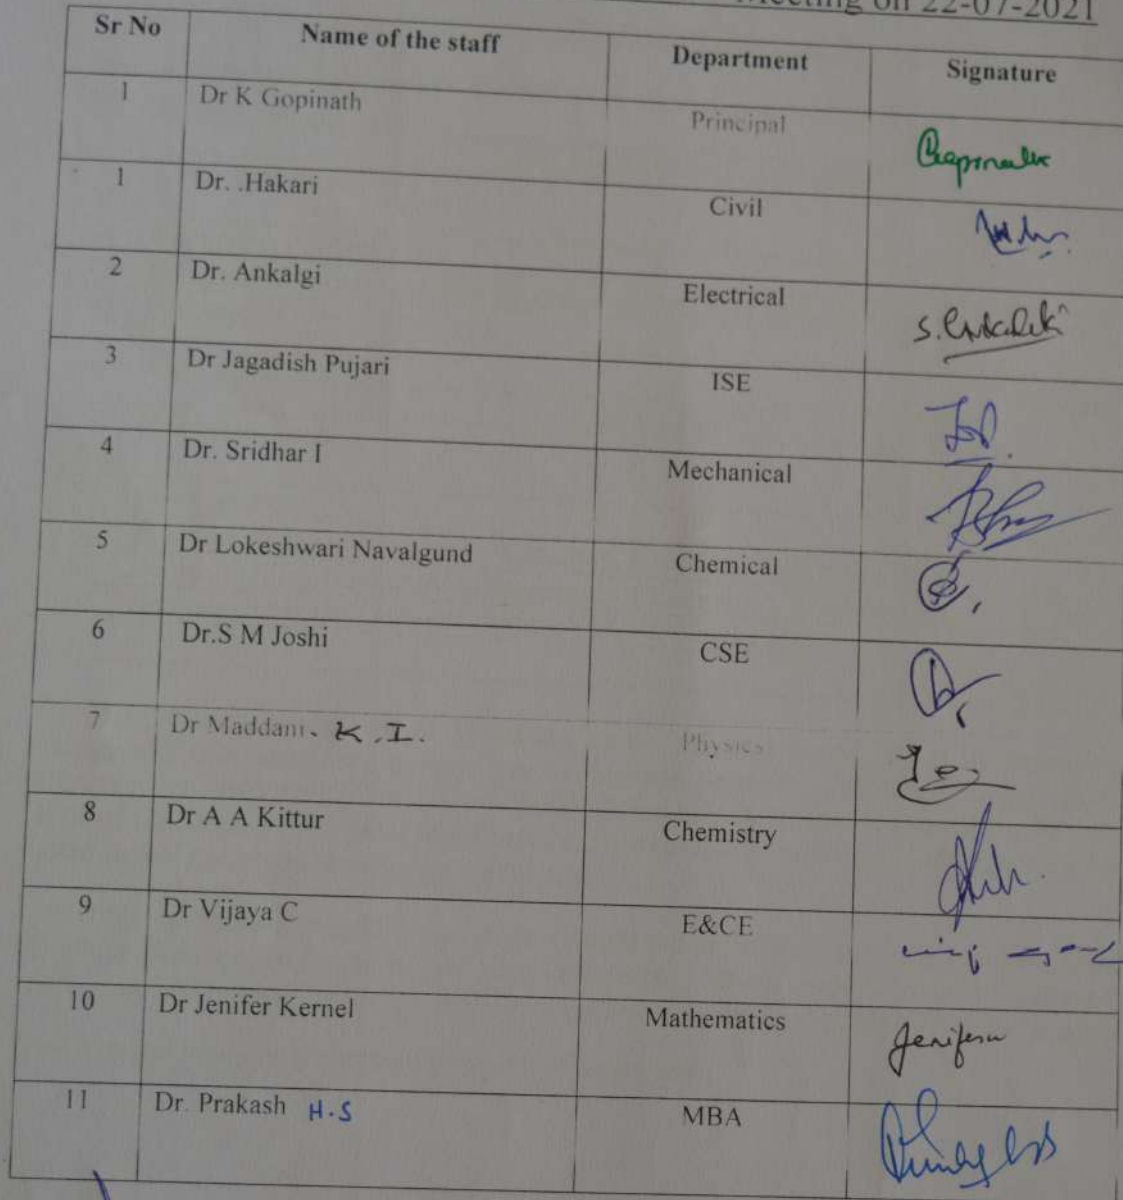 Meeting on 22-07-2021
Sr No Name of the staff Department Signature
1 Dr K Gopinath Principal
1 Dr. .Hakari Civil
2 Dr. Ankalgi Electrical
3 Dr Jagadish Pujari ISE
4 Dr. Sridhar I Mechanical
5 Dr Lokeshwari Navalgund Chemical
6 Dr.S M Joshi CSE
7 Dr Maddani. K.I. Physics
8 Dr A A Kittur Chemistry
9 Dr Vijaya C E&CE
10 Dr Jenifer Kernel Mathematics
11 Dr. Prakash H.S MBA